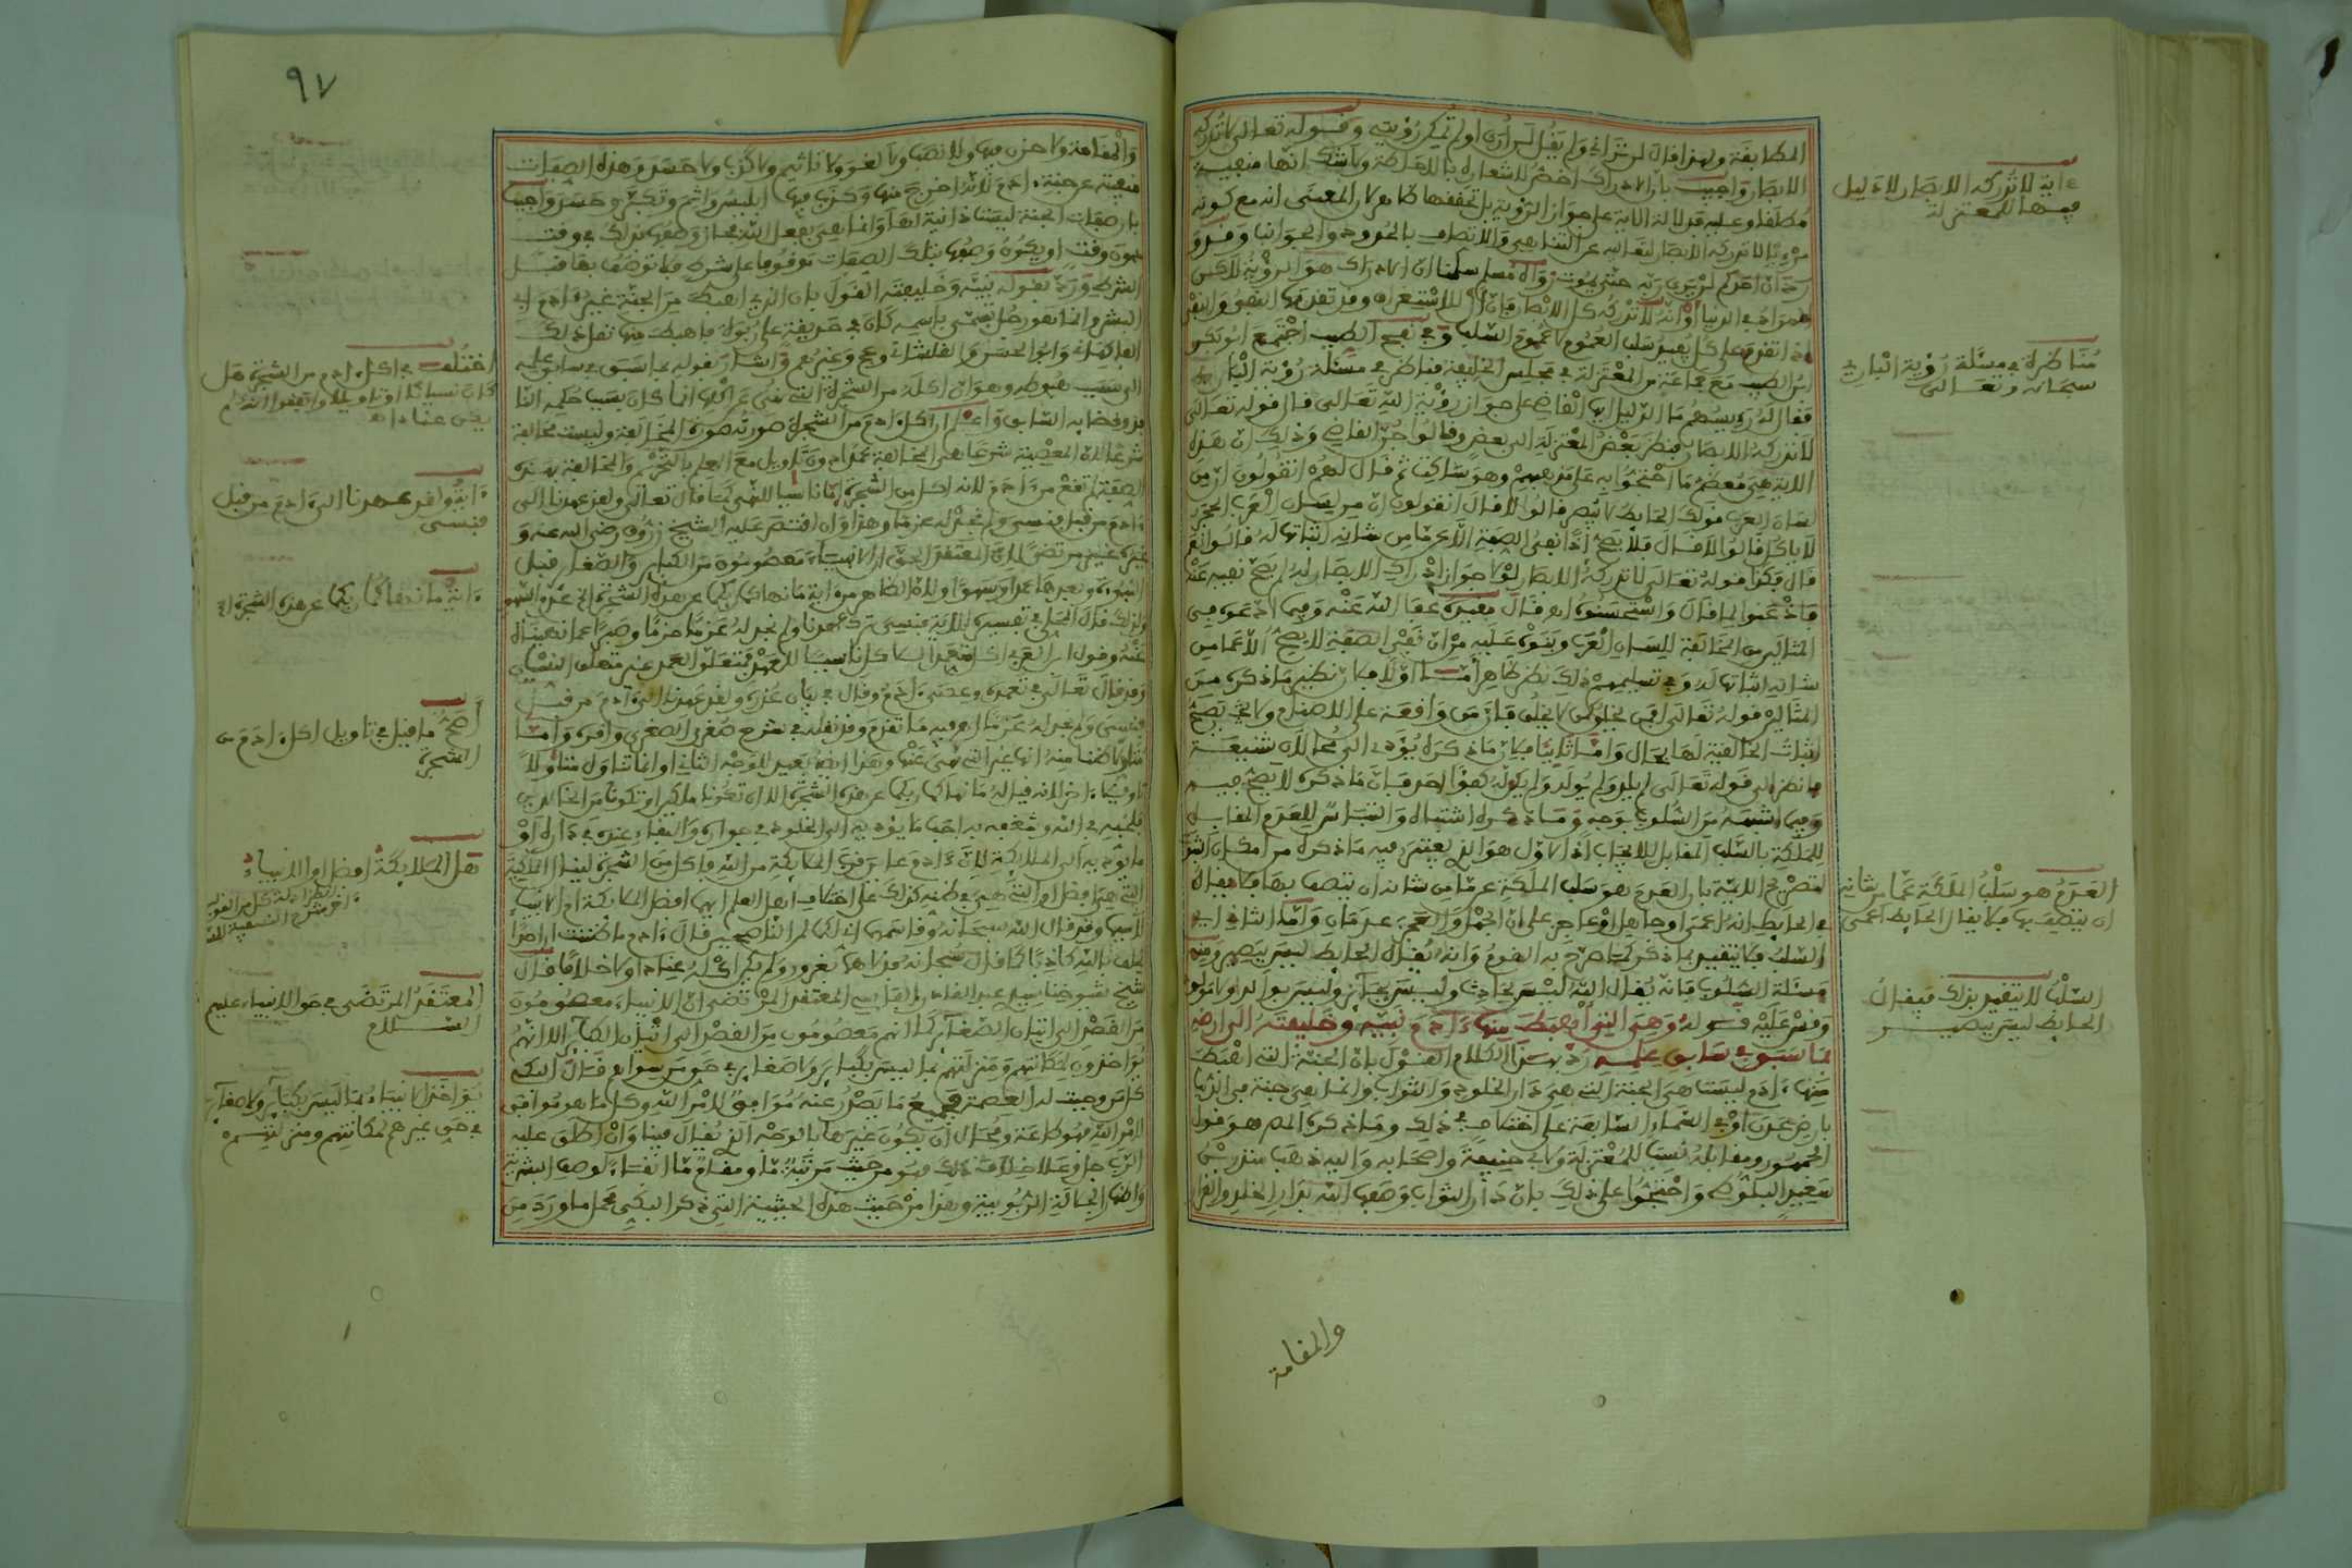 المطابقة ولهذا قال لن تراني ولم يقل لن أرى أو لم تمكن رؤيتي وقوله تعالى لا تدركه
الابصار واجيب بان الادراك اخص لاشعاره بالاحاطة ولا شك انها منفية
مطلقا وعليه فدلالة الاية على جواز الرؤية بل تحققها ظاهر لان المعنى انه مع كونه
مرءيا لا تدركه الابصار لتعاليه عن التناهي والاتصاف بالحدود والجوانب
حتى يموت وان الادراك هو الرؤية لاكن
المراد في الدنيا أو انه لا تدركه كل الابصار فان ال للاستغراق وقد تقدمها النفي
اذا تقدم على كل يفيد سلب العموم لا عموم السلب وفي نفح الطيب اجتمع ابو بكر
بن الطيب مع جماعة من المعتزلة في مجلس الخليفة فناظر في مسئلة رؤية الباري
فقال له رءيسهم ما الدليل ايها القاضي على جواز رؤية الله تعالى قال قوله تعالى
لا تدركه الابصار فنظر بعض المعتزلة الى بعض وقالوا جن القاضي وذلك ان هذه
الاية هي معظم ما احتجوا به على مذهبهم وهو ساكت ثم قال لهم اتقولون ان من
لسان العرب قولك الحايط لا يبصر قالوا لا قال اتقولون ان من لسان العرب الحجر
لا ياكل قالوا لا قال فلا يصح اذا نفي الصفة الا عما من شانه اثباتها له قالوا نعم
قال فكذا قوله تعالى لا تدركه الابصار لولا جواز ادراك الابصار له لم يصح نفيه عنه
فاذعنوا لما قال واستحسنوه اه قال مقيده عفا الله عنه وفيما ادعوه في
المثالين من المخالفة للسان العرب وبنوه عليه من ان نفي الصفة لا يصح الا عما من
شانه اثباتها له وفي تسليمهم ذلك نظر ظاهر اما اولا فلان نظير ما ذكره من
المثالين قوله تعالى افمن يخلق كمن لا يخلق فان من واقعة على الاصنام ولا يصح
اثبات الخالقية لها بحال واما ثانيا فلان ما ذكره يؤدي الى محالات شنيعة
فانظر الى قوله تعالى لم يلد ولم يولد ولم يكن له كفؤا احد فان ما ذكره لا يصح فيه
وفيما اشبهه من السلوب بوجه وما ذكره اشتباه والتباس للعدم المقابل
للملكة بالسلب المقابل للايجاب اذ الاول هو الذي يعتبر فيه ما ذكره
لتصريح الايمة بان العدم هو سلب الملكة عما من شانه ان يتصف بها فلا يقال
في الحايط انه اعمى او جاهل او عاجز على ان الجهل والعجز عدمان واما الثاني اي
السلب فلا يتقيد بما ذكر كما صرح به القوم وانه يقال الحايط ليس ببصير ومنه
مسئلة السلوب فانه يقال الله ليس بحادث وليس بعاجز وليس بوالد ولا مولود
وقس عليه قوله وهي التي أهبط منها ءادم نبيه وخليفته الى ارضه
بما سبق في سابق علمه رد بهذا الكلام القول بان الجنة التي اهبط
منها ءادم ليست هي الجنة التي هي دار الخلود والثواب وانما هي جنة في الدنيا
بارض عدن أو في السماء السابعة على اختلاف في ذلك وما ذكره المص هو قول
الجمهور ومقابله نسب للمعتزلة ولابي حنيفة واصحابه واليه ذهب منذر بن
سعيد البلوطي واحتجوا على ذلك بان دار الثواب وصفها الله بدار الخلد والقرار
والمقامة
ءاية لا تدركه الابصار لا دليل
فيها للمعتزلة
مناظرة في مسئلة رؤية الباري
سبحانه وتعالى
العدم هو سلب الملكة عما من شانه
ان يتصف بها فلا يقال الحايط اعمى
السلب لا يتقيد بذلك فيقال
الحايط ليس ببصير
٩٧
والمقامة ولا حزن فيها ولا نصب ولا لغو ولا تاثيم ولا كذب ولا حسد وهذه الصفات
منفية عن جنة ءادم لانه اخرج منها وكذب فيها ابليس واثم وتكبر وحسد واجيب
بان صفات الجنة ليست ذاتية لها وانما هي بفعل الله فجاز وصفها بذلك في وقت
دون وقت او يكون وصفها بتلك الصفات موقوفا على شرط فلا توصف بها قبل
الشرط ورد بقوله نبيه وخليفته القول بان الذي اهبط من الجنة غير ءادم ابي
البشر وانما هو رجل يسمى باسمه كان في حديقة على ربوة فاهبط منها نقل ذلك
الفاكهاني وابو الحسن والقلشاني وج وغيرهم واشار بقوله بما سبق في سابق علمه
الى سبب هبوطه وهو ان اكله من الشجرة التي نهي عن اكلها انما كان بسبب حكم الله
وقضايه السابق واعلم ان اكل ءادم من الشجرة صورته صورة المخالفة وليست مخالفة
شرعا لان المعصية شرعا هي المخالفة عمدا دون تاويل مع العلم بالتحريم والمخالفة بهذه
الصفة لم تقع من ءادم لانه اكل من الشجرة اما ناسيا للنهي كما قال تعالى ولقد عهدنا الى
ءادم من قبل فنسي ولم نجد له عزما وهذا وان اقتصر عليه الشيخ زروق رضي الله عنه و
غيره غير مرتضى لان المعتقد الحق ان الانبياء معصومون من الكباير والصغاير قبل
النبوة وبعدها عمدا وسهوا
ولذلك قال المحلي في تفسيره الاية فنسي ترك عهدنا ولم نجد له عزما حزما وصبرا عما نهيناه
عنه وقول ابن العربي اكل متعمدا
وقد قال تعالى في تعمده وعصى ءادم وقال في بيان عذره ولقد عهدنا الى ءادم من قبل
فنسي ولم نجد له عزما اه فيه ما تقدم وقد نقله في شرح صغرى الصغرى واقره واما
متاولا ظنا منه انها غير التي نهي عنها
ما نهاكما ربكما عن هذه الشجرة الا ان تكونا ملكين او تكونا من الخالدين
هل الملايكة افضل او الانبياء
وقد قال الله سبحانه وقاسمهما اني لكما لمن الناصحين قال ءادم ما ظننت ان احدا
يحلف بالله كاذبا كما قال سبحانه فدلاهما بغرور ولم يكن اكله عنادا ولا خلافا قال
شيخ شيوخنا سيدي عبد القادر الفاسي المعتقد المرتضى ان الانبياء معصومون
من القصد الى اتيان الصغاير كما انهم معصومون من القصد الى اتيان الكباير الا انهم
يؤاخذون لمكانتهم ومنزلتهم بما ليس بكباير ولا صغاير في حق من سواهم قال البكي
كل من وجبت له العصمة فجميع ما يصدر عنه موافق لامر الله وكل ما هو موافق
لامر الله فهو طاعة ومحال ان يكون غيرها بالوجه الذي يقال فينا وان اطلق عليه
الرب جل وعلا خلاف ذلك فهو من حيث مرتبة ما ومقام ما
هذه الحيثية التي ذكر البكي محمل ما ورد من
اختلف في اكل ءادم من الشجرة هل
كان نسيانا او تاويلا واتفقوا انه لم
يكن عنادا اه
ءاية ولقد عهدنا الى ءادم من قبل
فنسي
ءاية ما نهاكما ربكما عن هذه الشجرة الخ
أصح ما قيل في تاويل اكل ءادم من
الشجرة
هل الملايكة افضل او الانبياء
المعتقد المرتضى في حق الانبياء عليهم
السلام
يؤاخذ الانبياء بما ليس بكباير ولا صغاير
في حق غيرهم لمكانتهم ومنزلتهم